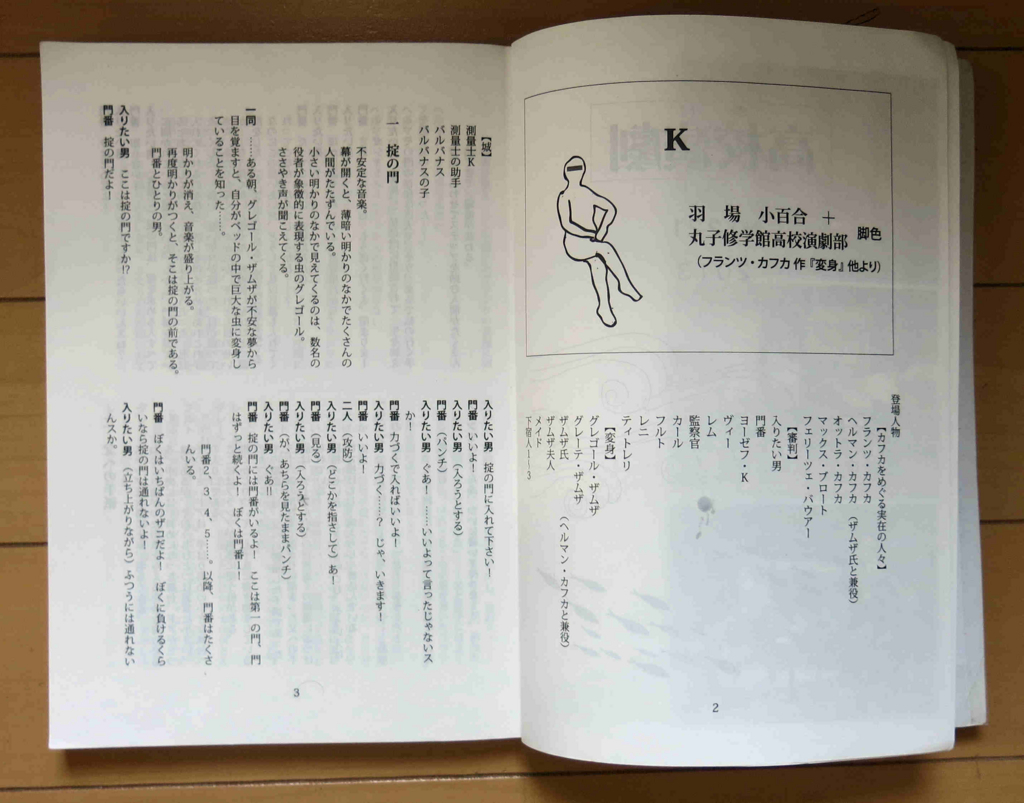 K
羽場 小百合 +
丸子修学館高校演劇部
脚色
(フランツ・カフカ作『変身』他より)
登場人物
【カフカをめぐる実在の人々】
フランツ・カフカ
ヘルマン・カフカ (ザムザ氏と兼役)
オットラ・カフカ
マックス・ブロート
フェリーツェ・バウアー
【審判】
入りたい男
門番
ヨーゼフ・K
ヴィー
レム
監察官
カール
フルト
レニ
ティトレリ
【変身】
グレゴール・ザムザ
グレーテ・ザムザ
ザムザ氏 (ヘルマン・カフカと兼役)
ザムザ夫人
メイド
下宿人1~3
2
【城】
測量士K
測量士の助手
バルバナス
バルバナスの子
一 掟の門
不安定な音楽。
幕が開くと、薄暗い明かりのなかでたくさんの
人間がたたずんでいる。
小さい明かりのなかで見えてくるのは、数名の
役者が象徴的に表現する虫のグレゴール。
ささやき声が聞こえてくる。
一同 ……ある朝、グレゴール・ザムザが不安な夢から
目を覚ますと、自分がベッドの中で巨大な虫に変身し
ていることを知った……。
明かりが消え、音楽が盛り上がる。
再度明かりがつくと、そこは掟の門の前である。
門番とひとりの男。
入りたい男 ここは掟の門ですか!?
門番 掟の門だよ!
入りたい男 掟の門に入れて下さい!
門番 いいよ!
入りたい男 (入ろうとする)
門番 (パンチ)
入りたい男 ぐあ! ……いいよって言ったじゃないス
か!
門番 力づくで入ればいいよ!
入りたい男 力づく……? じゃ、いきます!
門番 いいよ!
二人 (攻防)
入りたい男 (どこかを指さして)あ!
門番 (見る)
入りたい男 (入ろうとする)
門番 (が、あちらを見たままパンチ)
入りたい男 ぐあ!!
門番 掟の門には門番がいるよ! ここは第一の門、門
はずっと続くよ! ぼくは門番1!
門番2、3、4、5……。以降、門番はたくさ
んいる。
門番 ぼくはいちばんのザコだよ! ぼくに負けるくら
いなら掟の門は通れないよ!
入りたい男 (立ち上がりながら)ふつうには通れない
んスか。
3